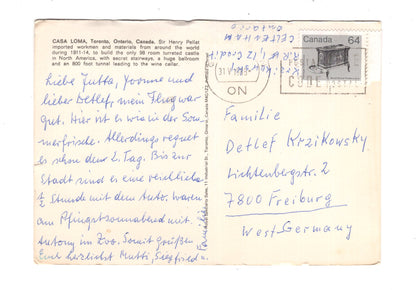 CASA LOMA, Toronto, Ontario, Canada, Sir Henry Pellat
imported workmen and materials from around the world
during 1911-14, to build the only 98 room turreted castle
in North America, with secret stairways, a huge ballroom
and an 800 foot tunnel leading to the wine cellar.
Liebe Jutta, Yvonne und
lieber Detlef, mein Flug war
gut. Hier ist es wie in der Som-
merfrische. Allerdings regnet
es schon den 2. Tag. Bis zur
Stadt sind es eine reichliche
½ Stunde mit dem Auto. Waren
am Pfingstsonnabend mit
Antony im Zoo. Somit grüßen
Euch herzlichst Mutti, Siegfried u.
Fam.
Krzikowsky
R.R. 1, Credit
CHELTENHAM
Ontario
Canada 64
31 V
ON
POSTAL
CODE
Familie
Detlef Krzikowsky
Lichtenbergstr. 2
7800 Freiburg
West Germany